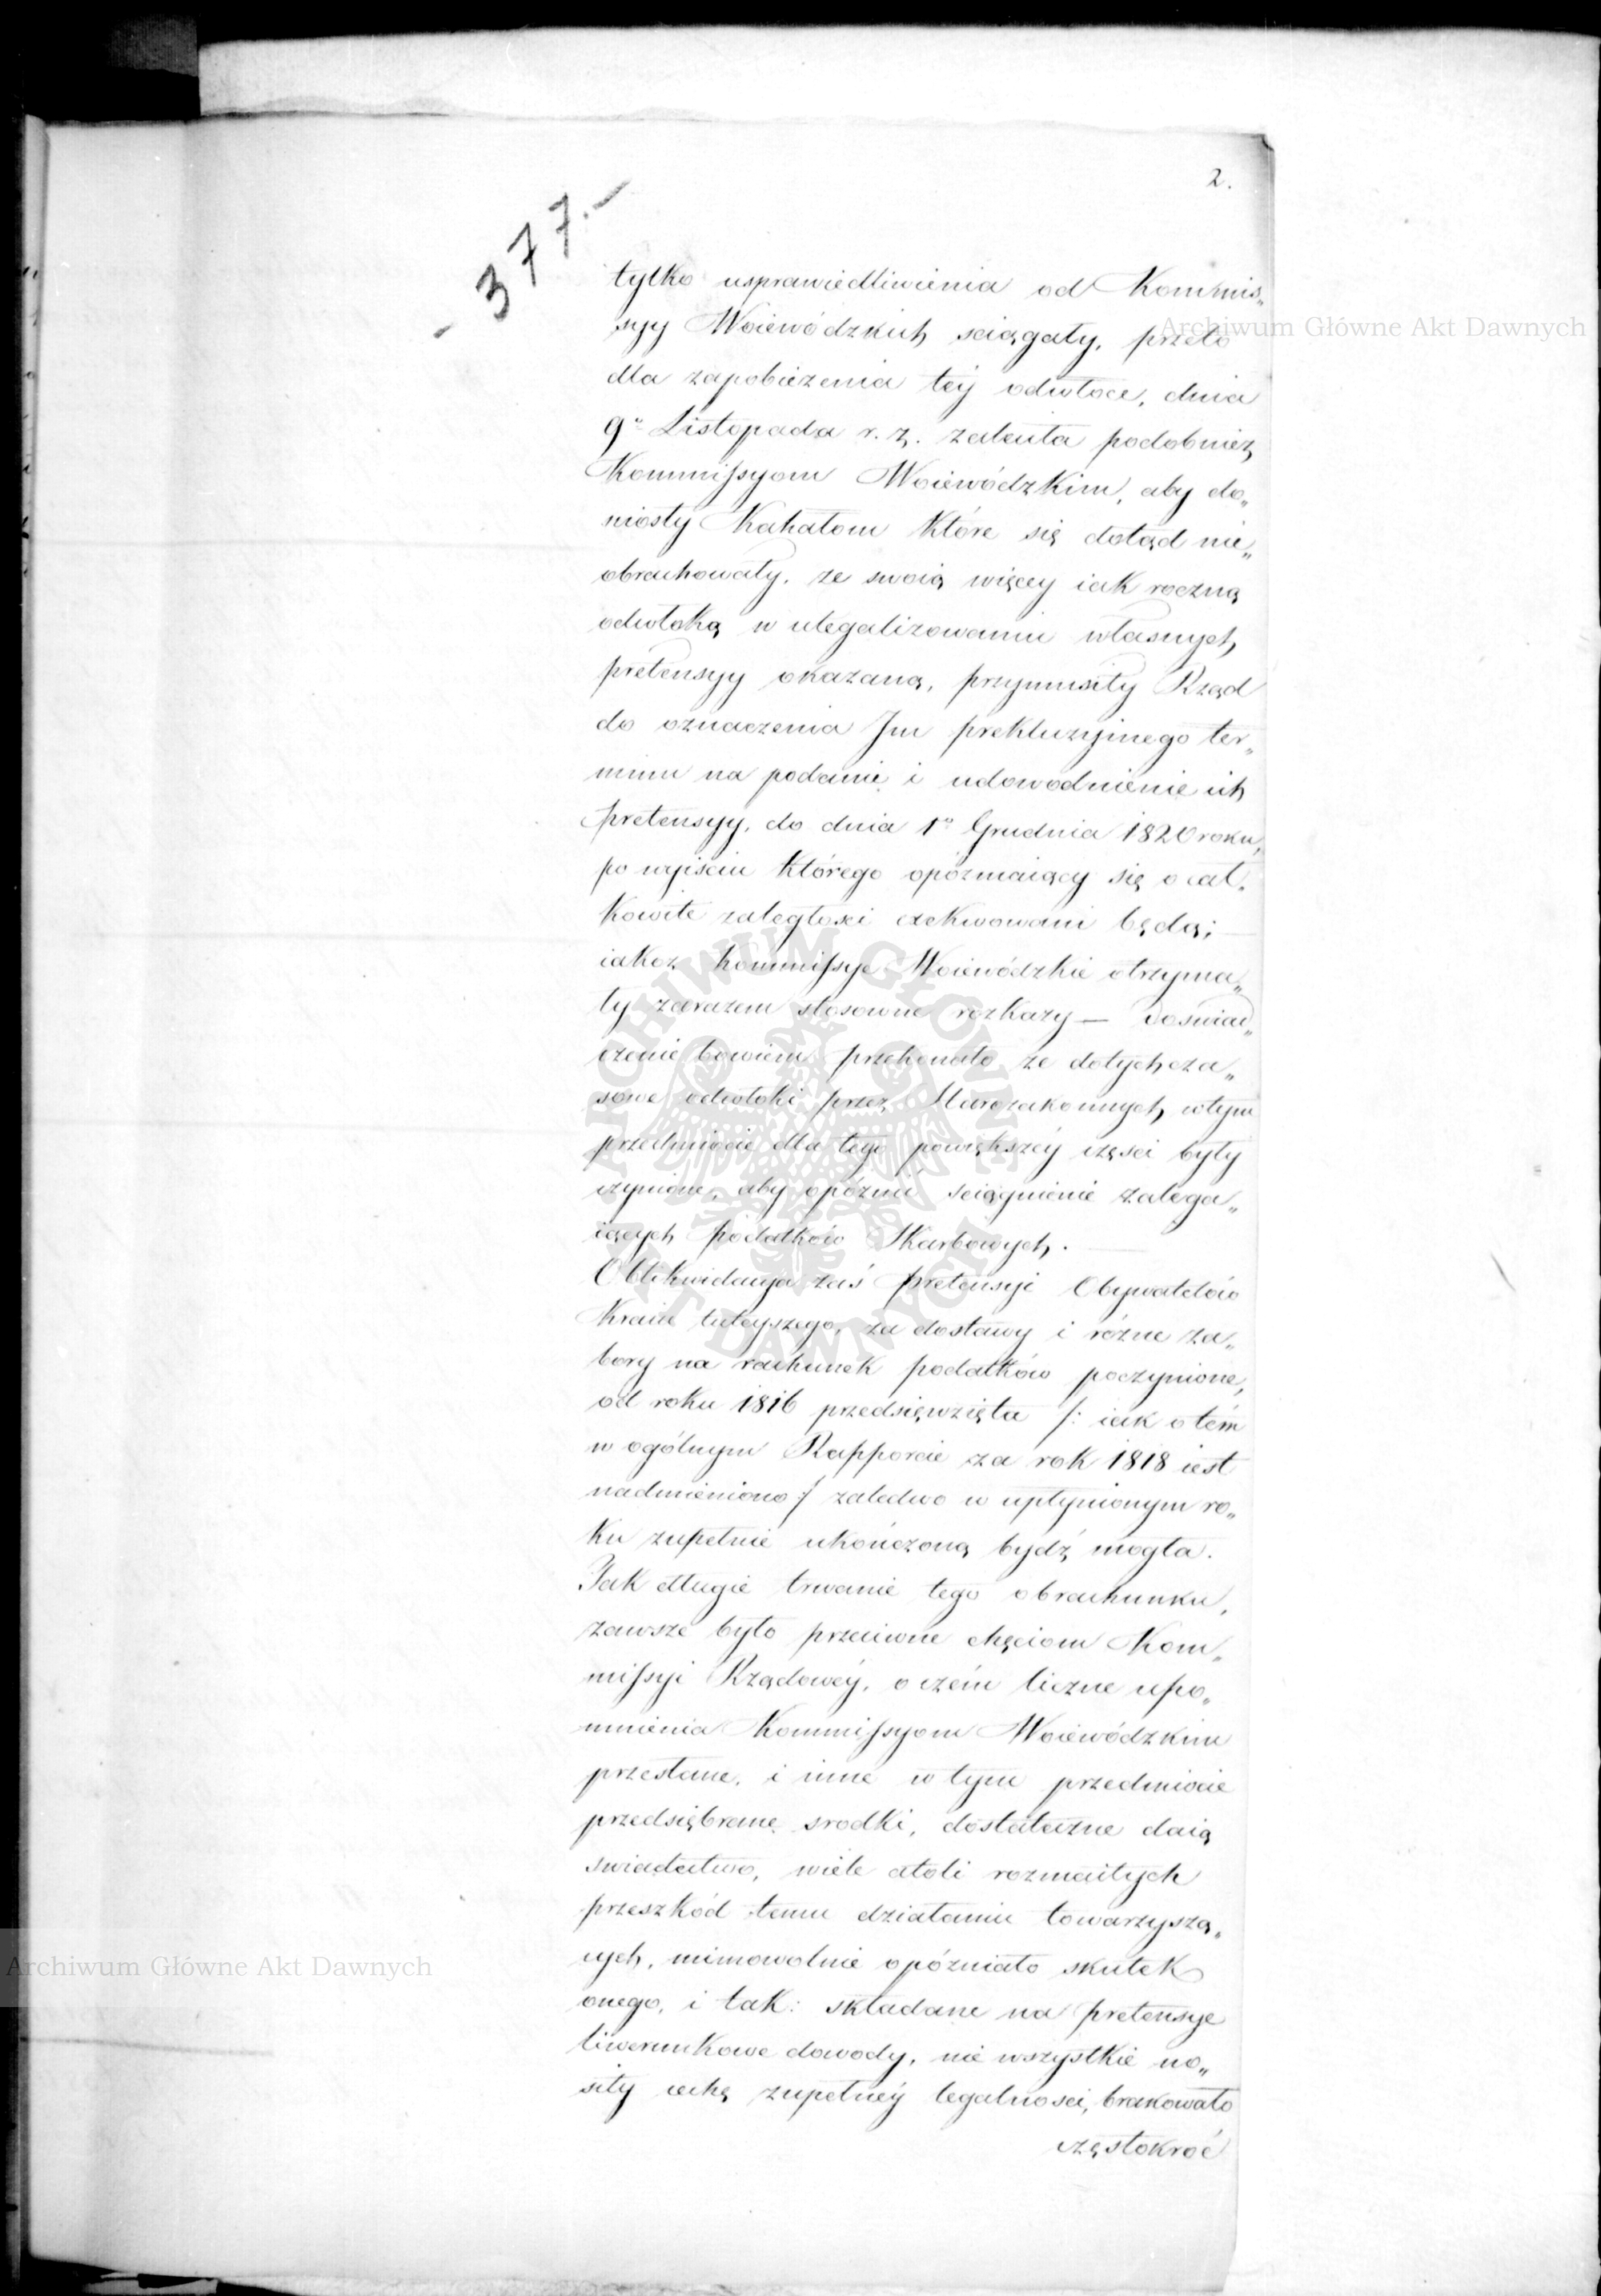 2.
- 377. -
tylko usprawiedliwienia od Kommis„
syy Woiewódzkich sciągały, przeto
dla zapobieżenia téy odwłoce, dnia
9º Listopada r. z. zaleciła podobnież
Kommissyom Woiewódzkim, aby do„
niosły Kahałom które się dotąd nie„
obrachowały, że swoią więcey iak roczną
odwłoką w ulegalizowaniu własnych
pretensyy okazaną, przymusiły Rząd
do oznaczenia Jm prekluzyinego ter„
minu na podanie i udowodnienie ich
pretensyy, do dnia 1º Grudnia 1820 roku,
po wyiściu którego opóźniaiący się o cał„
kowite zaległosci exekwowani będą;
iakoż Kommissye Woiewódzkie otrzyma„
ły zarazem stosowne rozkazy — Doswiad„
czenie bowiem przekonało że dotychcza„
sowe odwłoki przez Starozakonnych w tym
przedmiocie dla tego powiększéy części były
czynione, aby opóźnić sciągnienie zalega„
iących podatków Skarbowych.
Oblikwidacya zaś pretensyi Obywatelów
Kraiu tuteyszego, za dostawy i różne za„
bory na rachunek podatków poczynione,
od roku 1816 przedsięwzięta /: iak o tém
w ogólnym Rapporcie za rok 1818 iest
nadmieniono :/ zaledwo w upłynionym ro„
ku zupełnie ukończoną bydź mogła.
Tak długie trwanie tego obrachunku,
zawsze było przeciwne chęciom Kom„
missyi Rządowéy, o czém liczne upo„
mnienia Kommissyom Woiewódzkim
przesłane, i inne w tym przedmiocie
przedsiębrane srodki, dostateczne daią
swiadectwo, wiele atoli rozmaitych
przeszkód temu działaniu towarzyszą„
cych, mimowolnie opóźniało skutek
onego, i tak: składane na pretensye
liwerunkowe dowody, nie wszystkie no„
siły cechę zupełnéy legalnosci, brakowało
częstokroć
Archiwum Główne Akt Dawnych
Archiwum Główne Akt Dawnych
ARCHIWUM GŁÓWNE
AKT DAWNYCH